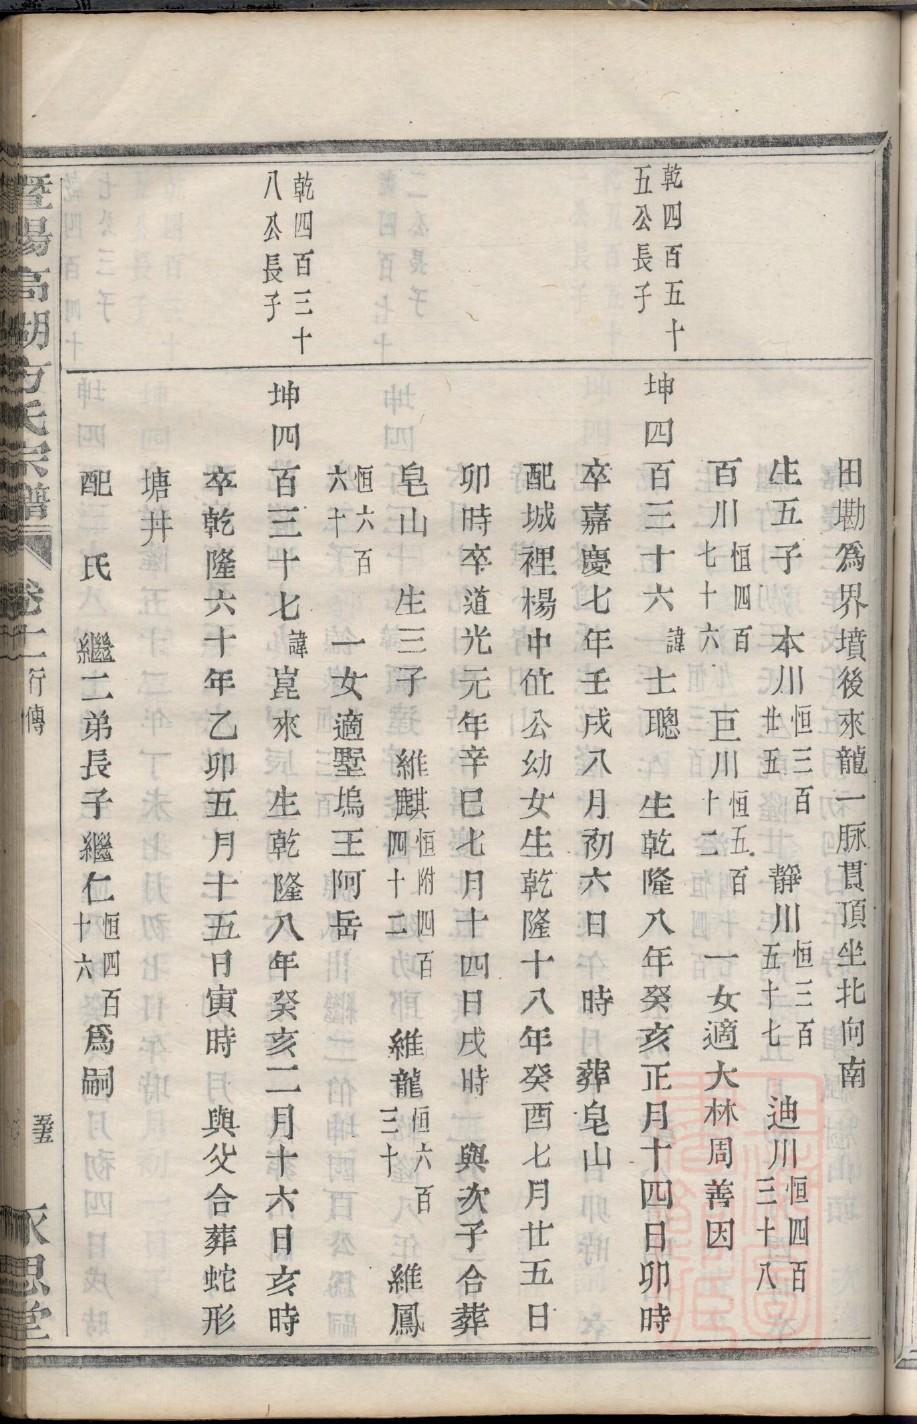 田墈為界墳後來龍一脉貫頂坐北向南
生五子 本川恒三百廿五 靜川恒三百五十七 迪川恒四百三十八
百川恒四百七十六 巨川恒五百十二 一女適大林周善因
乾四百五十五公長子
坤四百三十六諱士聰 生乾隆八年癸亥正月十四日卯時
卒嘉慶七年壬戌八月初六日 時 葬皂山
配城裡楊中位公幼女生乾隆十八年癸酉七月廿五日
卯時卒道光元年辛巳七月十四日戌時 與次子合葬
皂山 生三子 維麒恒附四百四十二 維龍恒六百三十 維鳳
恒六百六十 一女適墅塢王阿岳
乾四百三十八公長子
坤四百三十七諱崑來 生乾隆八年癸亥二月十六日亥時
卒乾隆六十年乙卯五月十五日寅時 與父合葬蛇形
塘井
配 氏 繼二弟長子繼仁恒四百十六為嗣
暨陽高湖方氏宗譜 卷十二行傳 永思堂